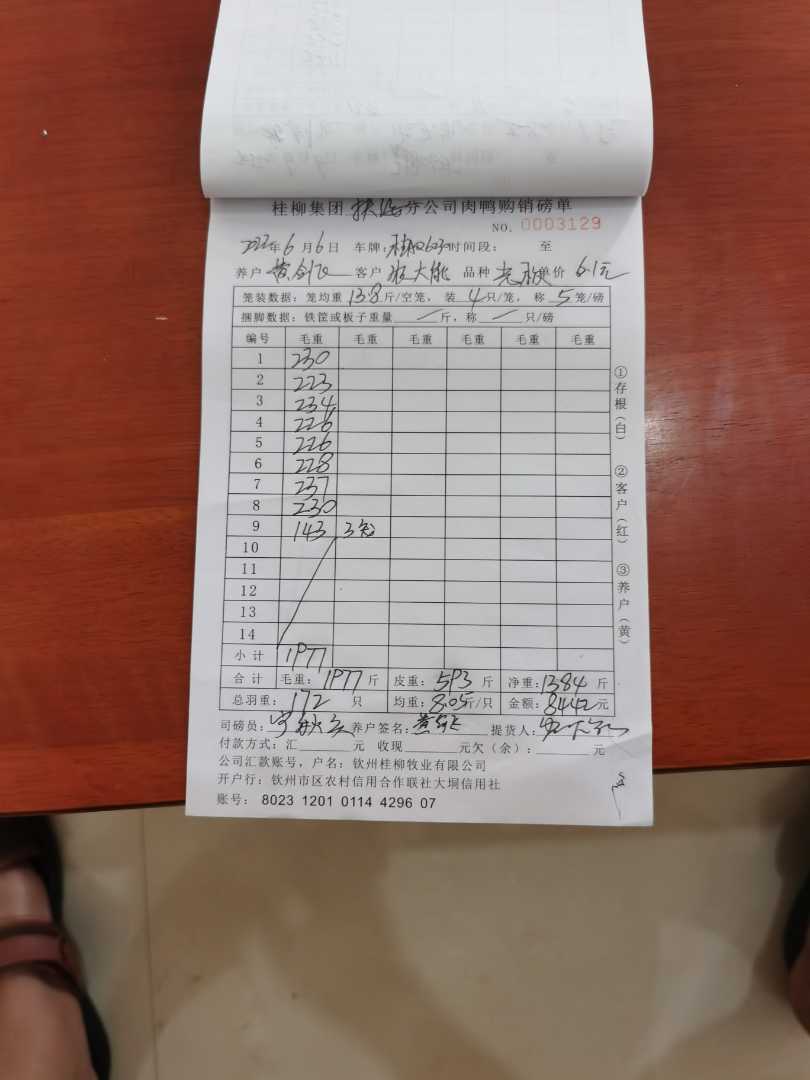 桂柳集团 扶绥 分公司肉鸭购销磅单
NO. 0003129
2022年6月6日 车牌: 时间段: 至
养户 黄剑飞 客户 大 品种 单价 6.1元
笼装数据: 笼均重 13.8 斤/空笼, 装 4 只/笼, 称 5 笼/磅
捆脚数据: 铁筐或板子重量 / 斤, 称 / 只/磅
编号 毛重 毛重 毛重 毛重 毛重 毛重
1 230
2 223
3 234
4 226
5 226
6 228
7 237
8 230
9 143 3笼
10
11
12
13
14
小计 1977
合计 毛重: 1977 斤 皮重: 593 斤 净重: 1384 斤
总羽重: 172 只 均重: 8.05 斤/只 金额: 8442 元
司磅员: 养户签名: 提货人:
付款方式: 汇 元 收现 元欠(余): 元
公司汇款账号, 户名: 钦州桂柳牧业有限公司
开户行: 钦州市区农村信用合作联社大垌信用社
账号: 8023 1201 0114 4296 07
①存根(白)
②客户(红)
③养户(黄)